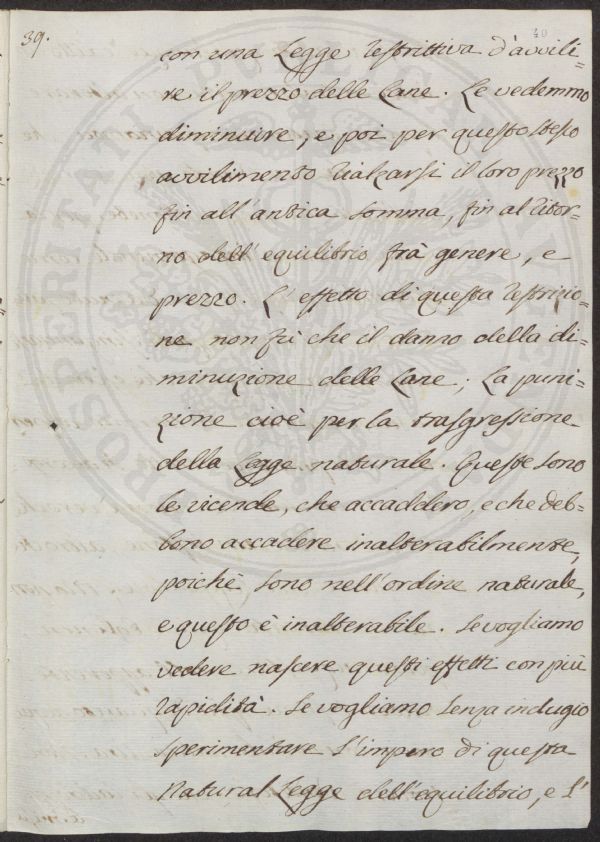 39.
40
con una Legge restrittiva d'avvili=
re il prezzo delle Lane. Le vedemmo
diminuire, e poi per questo stesso
avvilimento rialzarsi il loro prezzo
fin all'antica somma, fin al ritor=
no dell'equilibrio frà genere, e
prezzo. L'effetto di questa restrizio=
ne non fù che il danno della di=
minuzione delle Lane; La puni=
zione cioè per la trasgressione
della Legge naturale. Queste sono
le vicende, che accaddero, e che deb=
bono accadere inalterabilmente,
poichè sono nell'ordine naturale,
e questo è inalterabile. Se vogliamo
vedere nascere questi effetti con più
rapidità. Se vogliamo senza indugio
sperimentare l'impero di questa
Natural Legge dell'equilibrio, e l'